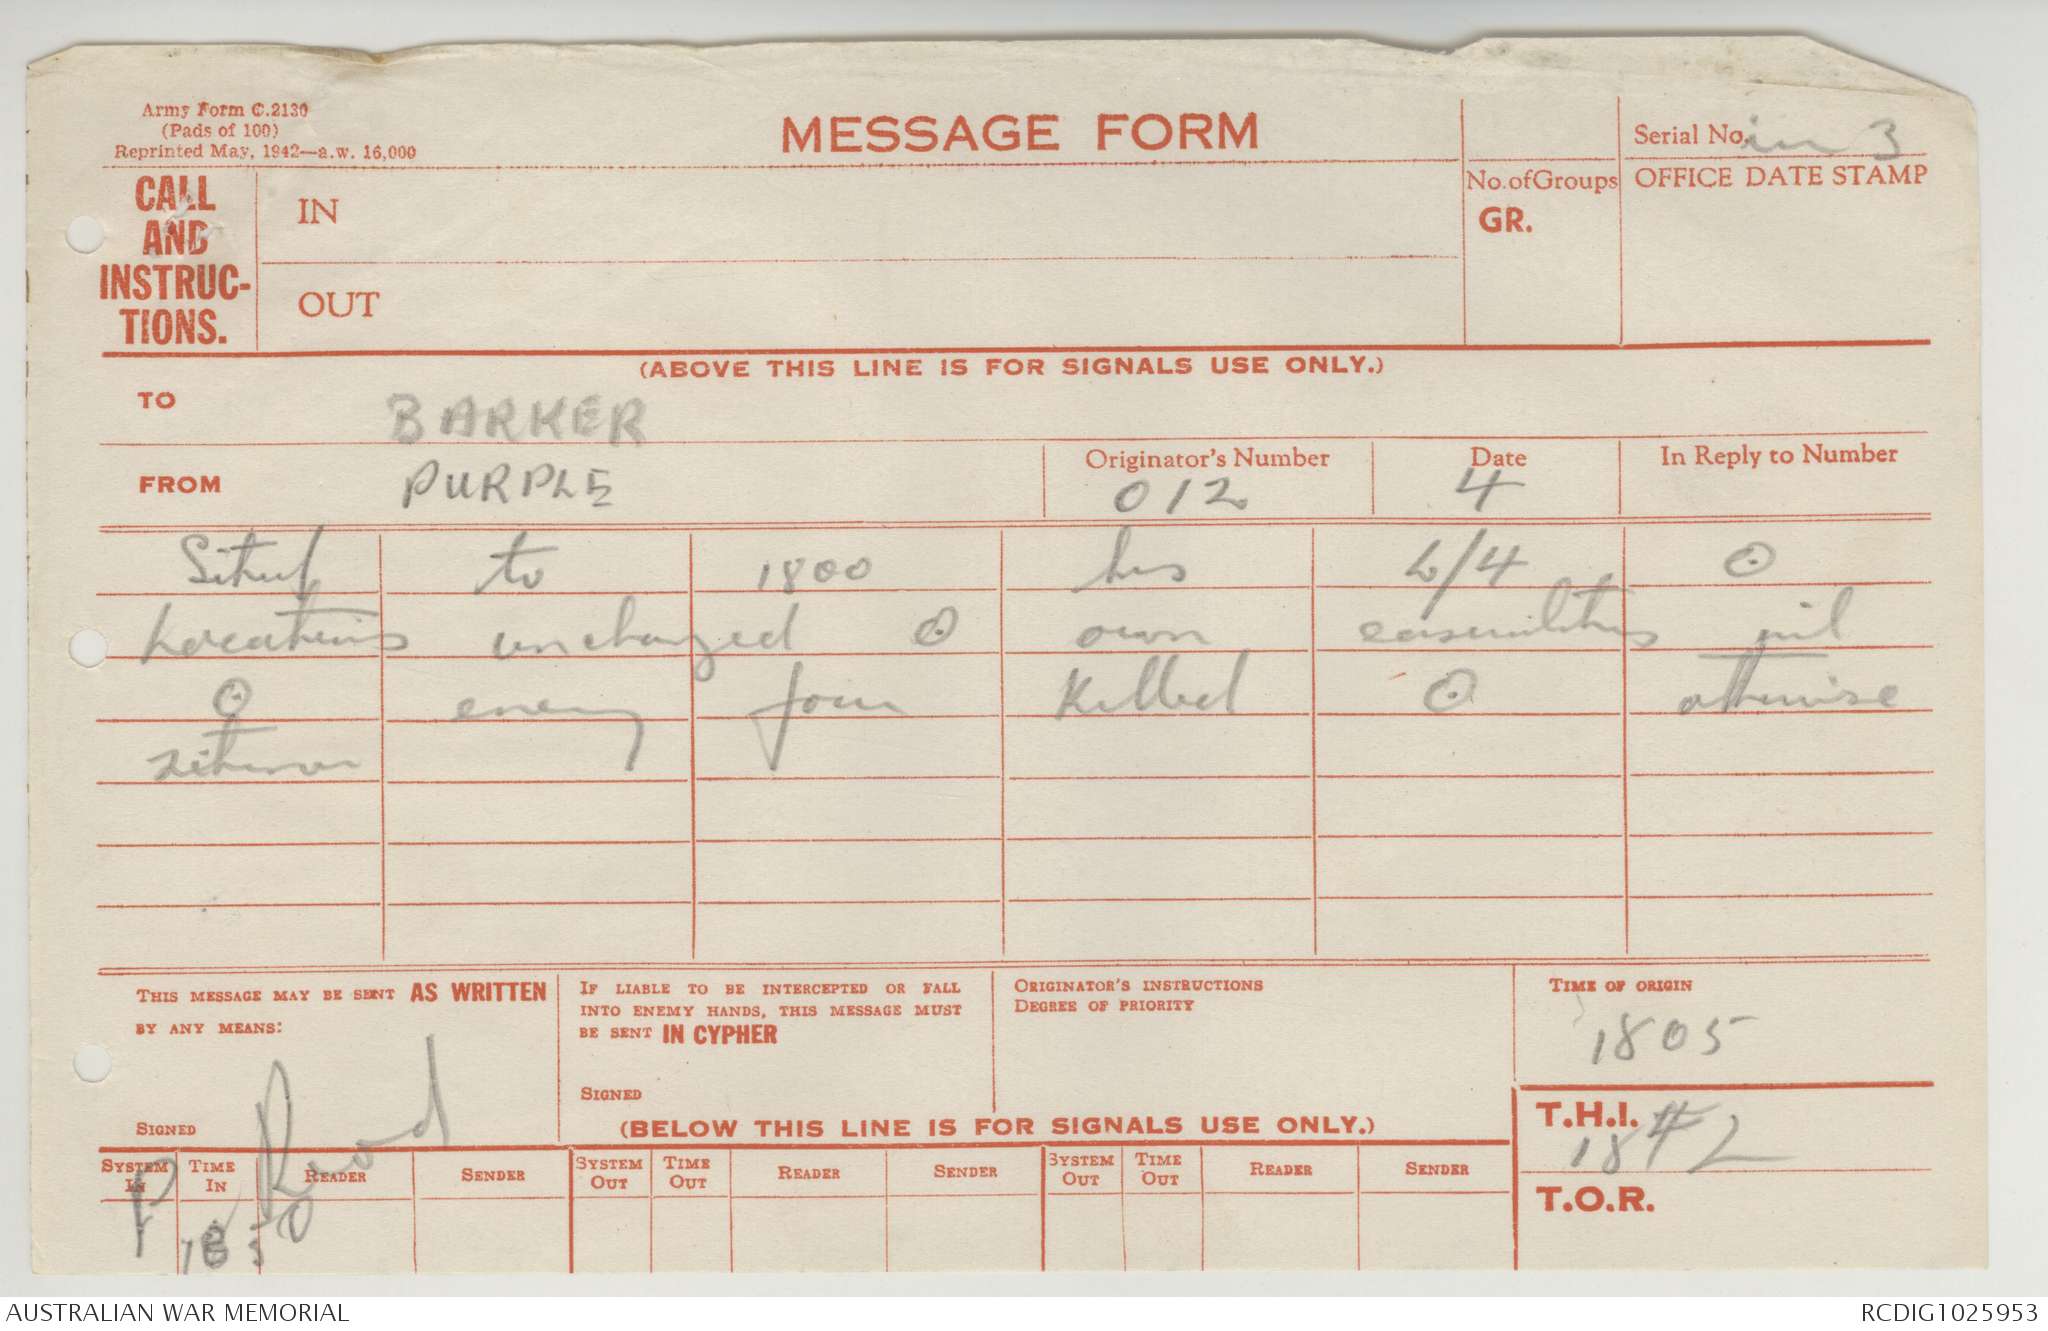 Army Form C.2130
(Pads of 100)
Reprinted May, 1942—a.w. 16,000
MESSAGE FORM
Serial No. in 3
CALL
AND
INSTRUC-
TIONS.
IN
OUT
No. of Groups
GR.
OFFICE DATE STAMP
(ABOVE THIS LINE IS FOR SIGNALS USE ONLY.)
TO BARKER
FROM PURPLE
Originator's Number
012
Date
4
In Reply to Number
Sitrep to 1800 hrs 4/4 ⊙
Locations unchanged ⊙ own casualties nil
⊙ enemy four Killed ⊙ otherwise
THIS MESSAGE MAY BE SENT AS WRITTEN
BY ANY MEANS:
SIGNED
IF LIABLE TO BE INTERCEPTED OR FALL
INTO ENEMY HANDS, THIS MESSAGE MUST
BE SENT IN CYPHER
SIGNED
ORIGINATOR'S INSTRUCTIONS
DEGREE OF PRIORITY
TIME OF ORIGIN
1805
(BELOW THIS LINE IS FOR SIGNALS USE ONLY.)
T.H.I.
T.O.R.
SYSTEM IN TIME IN READER SENDER SYSTEM OUT TIME OUT READER SENDER SYSTEM OUT TIME OUT READER SENDER
P 1850
AUSTRALIAN WAR MEMORIAL
RCDIG1025953